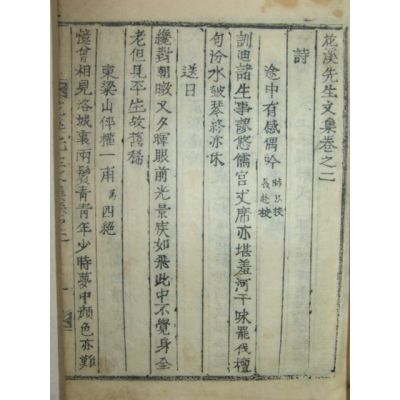 花溪先生文集卷之二
詩
途中有感偶吟 時以校長赴校
訓迪諸生事夢悠儒宮丈席亦堪羞河干咏罷伐檀
句汾水皷琴終亦休
送日
纔對朝暾又夕暉眼前光景疾如飛此中不覺身全
老但見平生故舊稀
東梁山倅權一甫 萬 四絶
憶曾相見洛城裏兩鬢靑靑年少時夢中顔色亦難